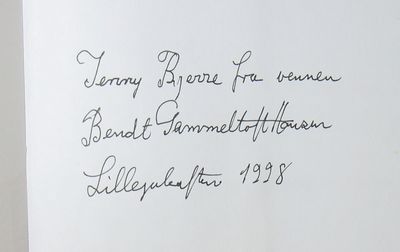 Jenny Bjerre fra vennen
Bendt Gammeltoft Hansen
Lillejuleaften 1998